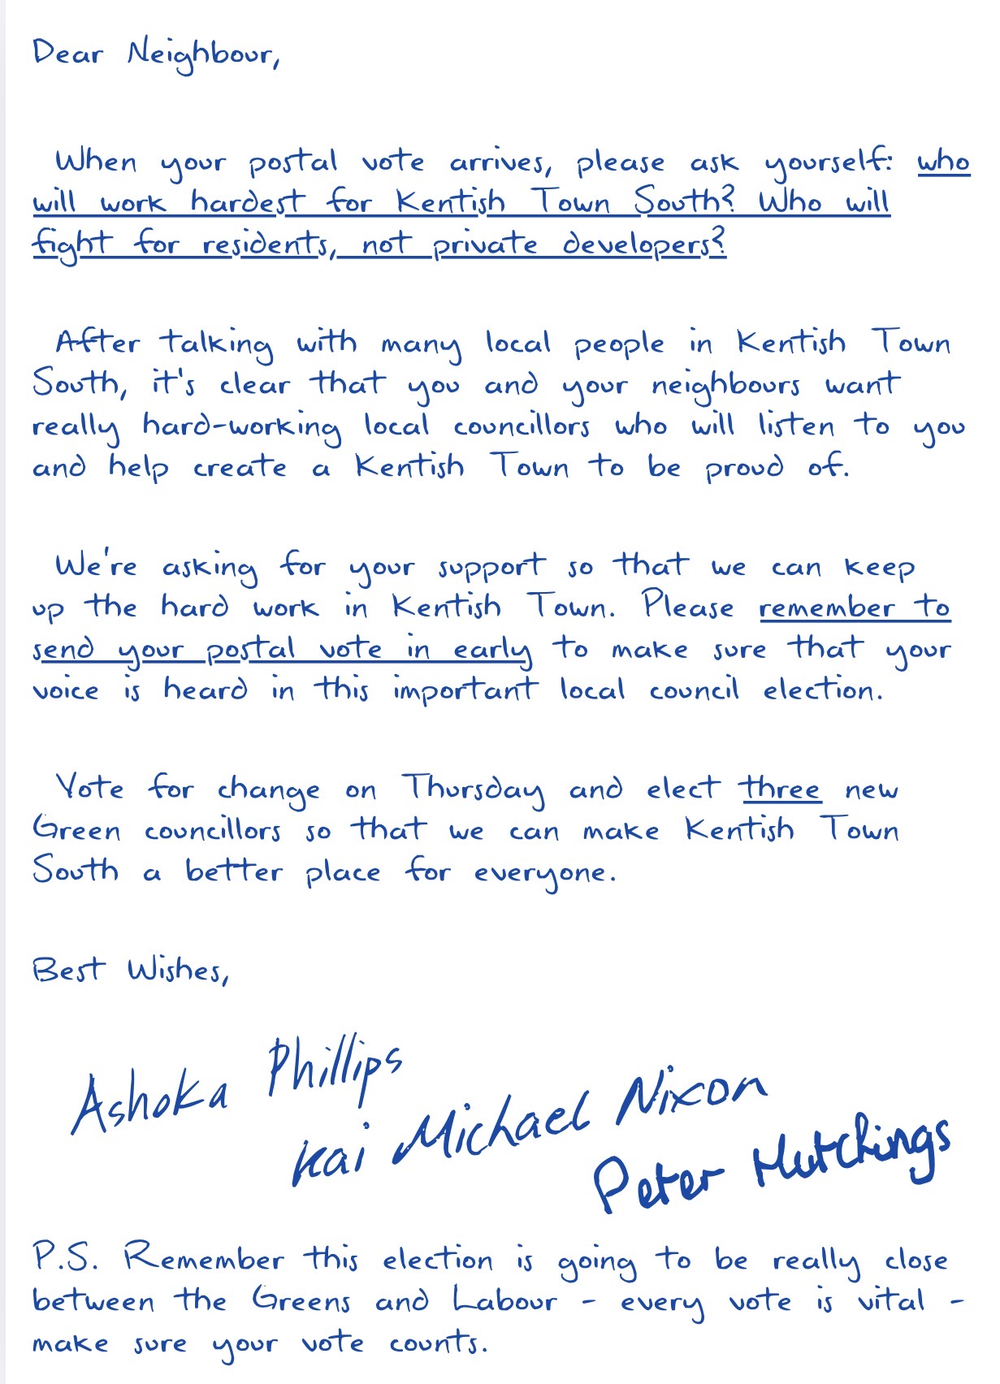 Dear Neighbour,
When your postal vote arrives, please ask yourself: who
will work hardest for Kentish Town South? Who will
fight for residents, not private developers?
After talking with many local people in Kentish Town
South, it's clear that you and your neighbours want
really hard-working local councillors who will listen to you
and help create a Kentish Town to be proud of.
We're asking for your support so that we can keep
up the hard work in Kentish Town. Please remember to
send your postal vote in early to make sure that your
voice is heard in this important local council election.
Vote for change on Thursday and elect three new
Green councillors so that we can make Kentish Town
South a better place for everyone.
Best Wishes,
Ashoka Phillips
Kai Michael Nixon
Peter Hutchings
P.S. Remember this election is going to be really close
between the Greens and Labour - every vote is vital -
make sure your vote counts.